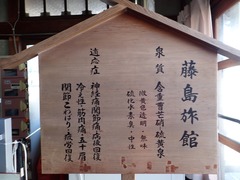 藤島旅館
泉質 含重曹芒硝硫黄泉
微黄色透明・無味
硫化水素臭・中性
適応症
神経痛・関節痛・病後回復
冷え性・筋肉痛・五十肩
関節こわばり・疲労回復